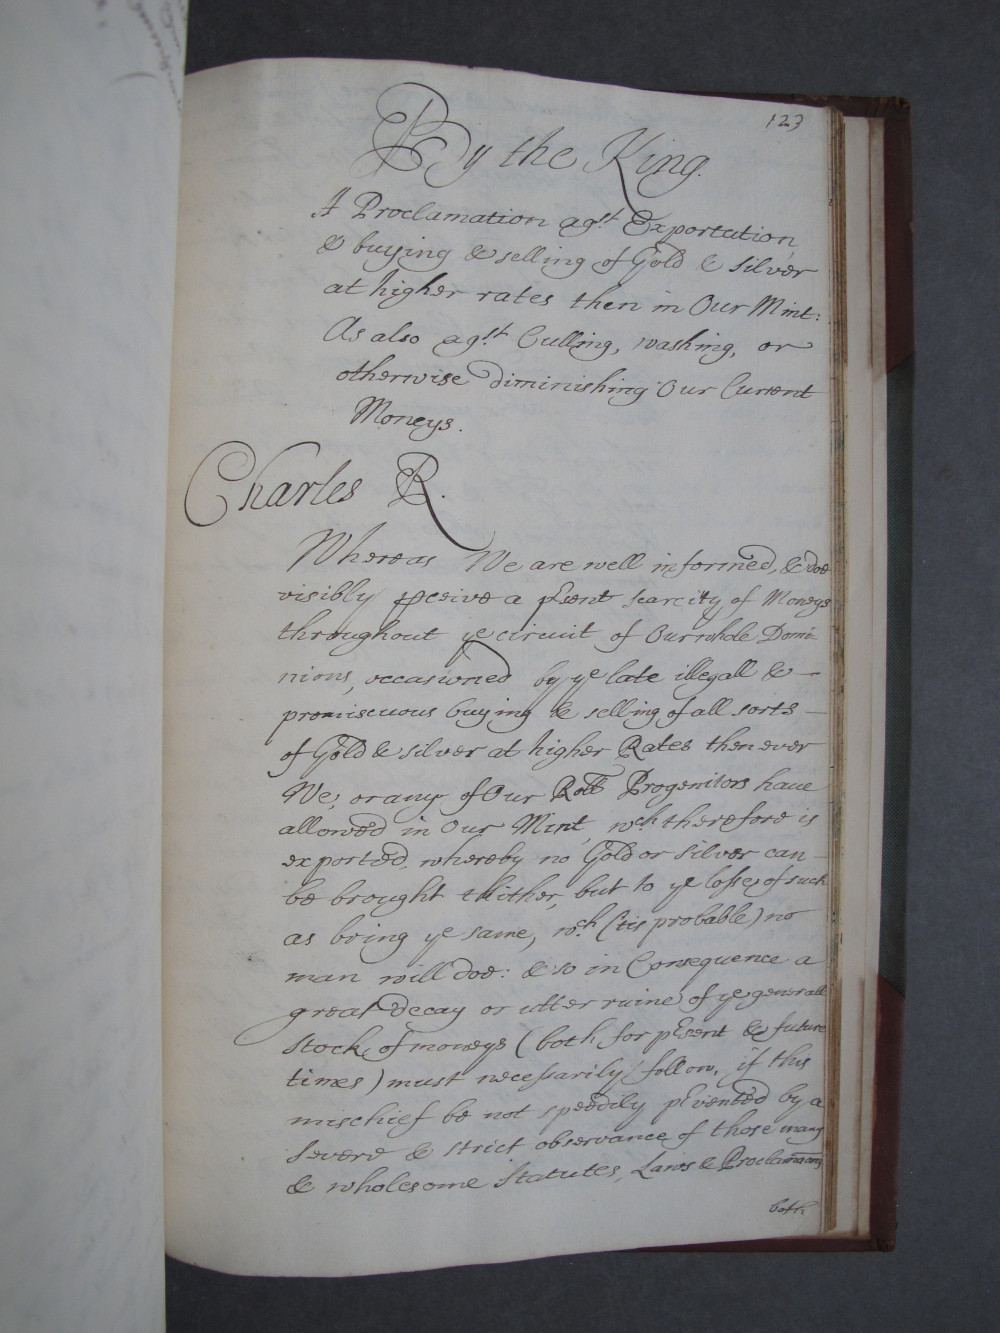 123
By the King.
A Proclamation agst. Exportation
& buying & selling of Gold & silver
at higher rates then in Our Mint:
As also agst. Culling, washing, or
otherwise diminishing Our Current
Moneys.
Charles R.
Whereas We are well informed, & doe
visibly pceive a psent scarcity of Moneys
throughout ye circuit of Our whole Domi-
nions, occasioned by ye late illegall &
promiscuous buying & selling of all sorts
of Gold & silver at higher Rates then ever
We, or any of Our Roll Progenitors have
allowed in Our Mint, wch therefore is
exported, whereby no Gold or silver can
be brought thither, but to ye losse of such
as bring ye same, wch. (tis probable) no
man will doe: & so in Consequence a
great decay or utter ruine of ye generall
Stock of moneys (both for psent & future
times) must necessarily follow, if this
mischief be not speedily pvented by a
severe & strict observance of those many
& wholesome Statutes, Laws & Proclamacons
both